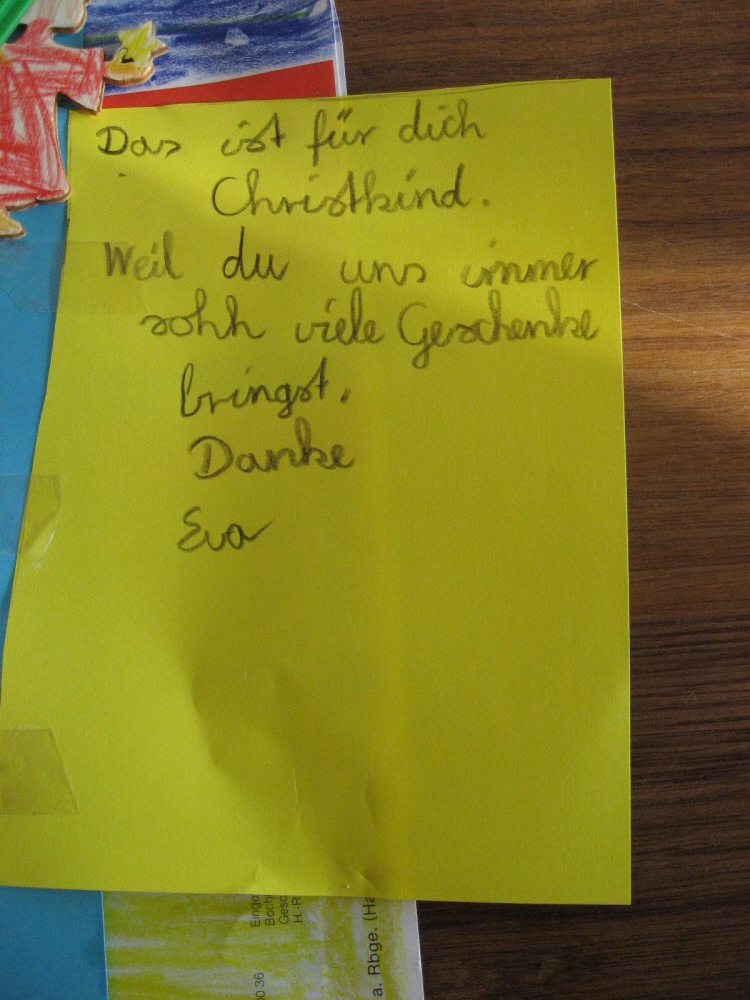 Das ist für dich
Christkind.
Weil du uns immer
sohh viele Geschenke
bringst.
Danke
Eva
2
Einge
Boch
Gesc
H.-R
0 36
a. Rbge. (Ha